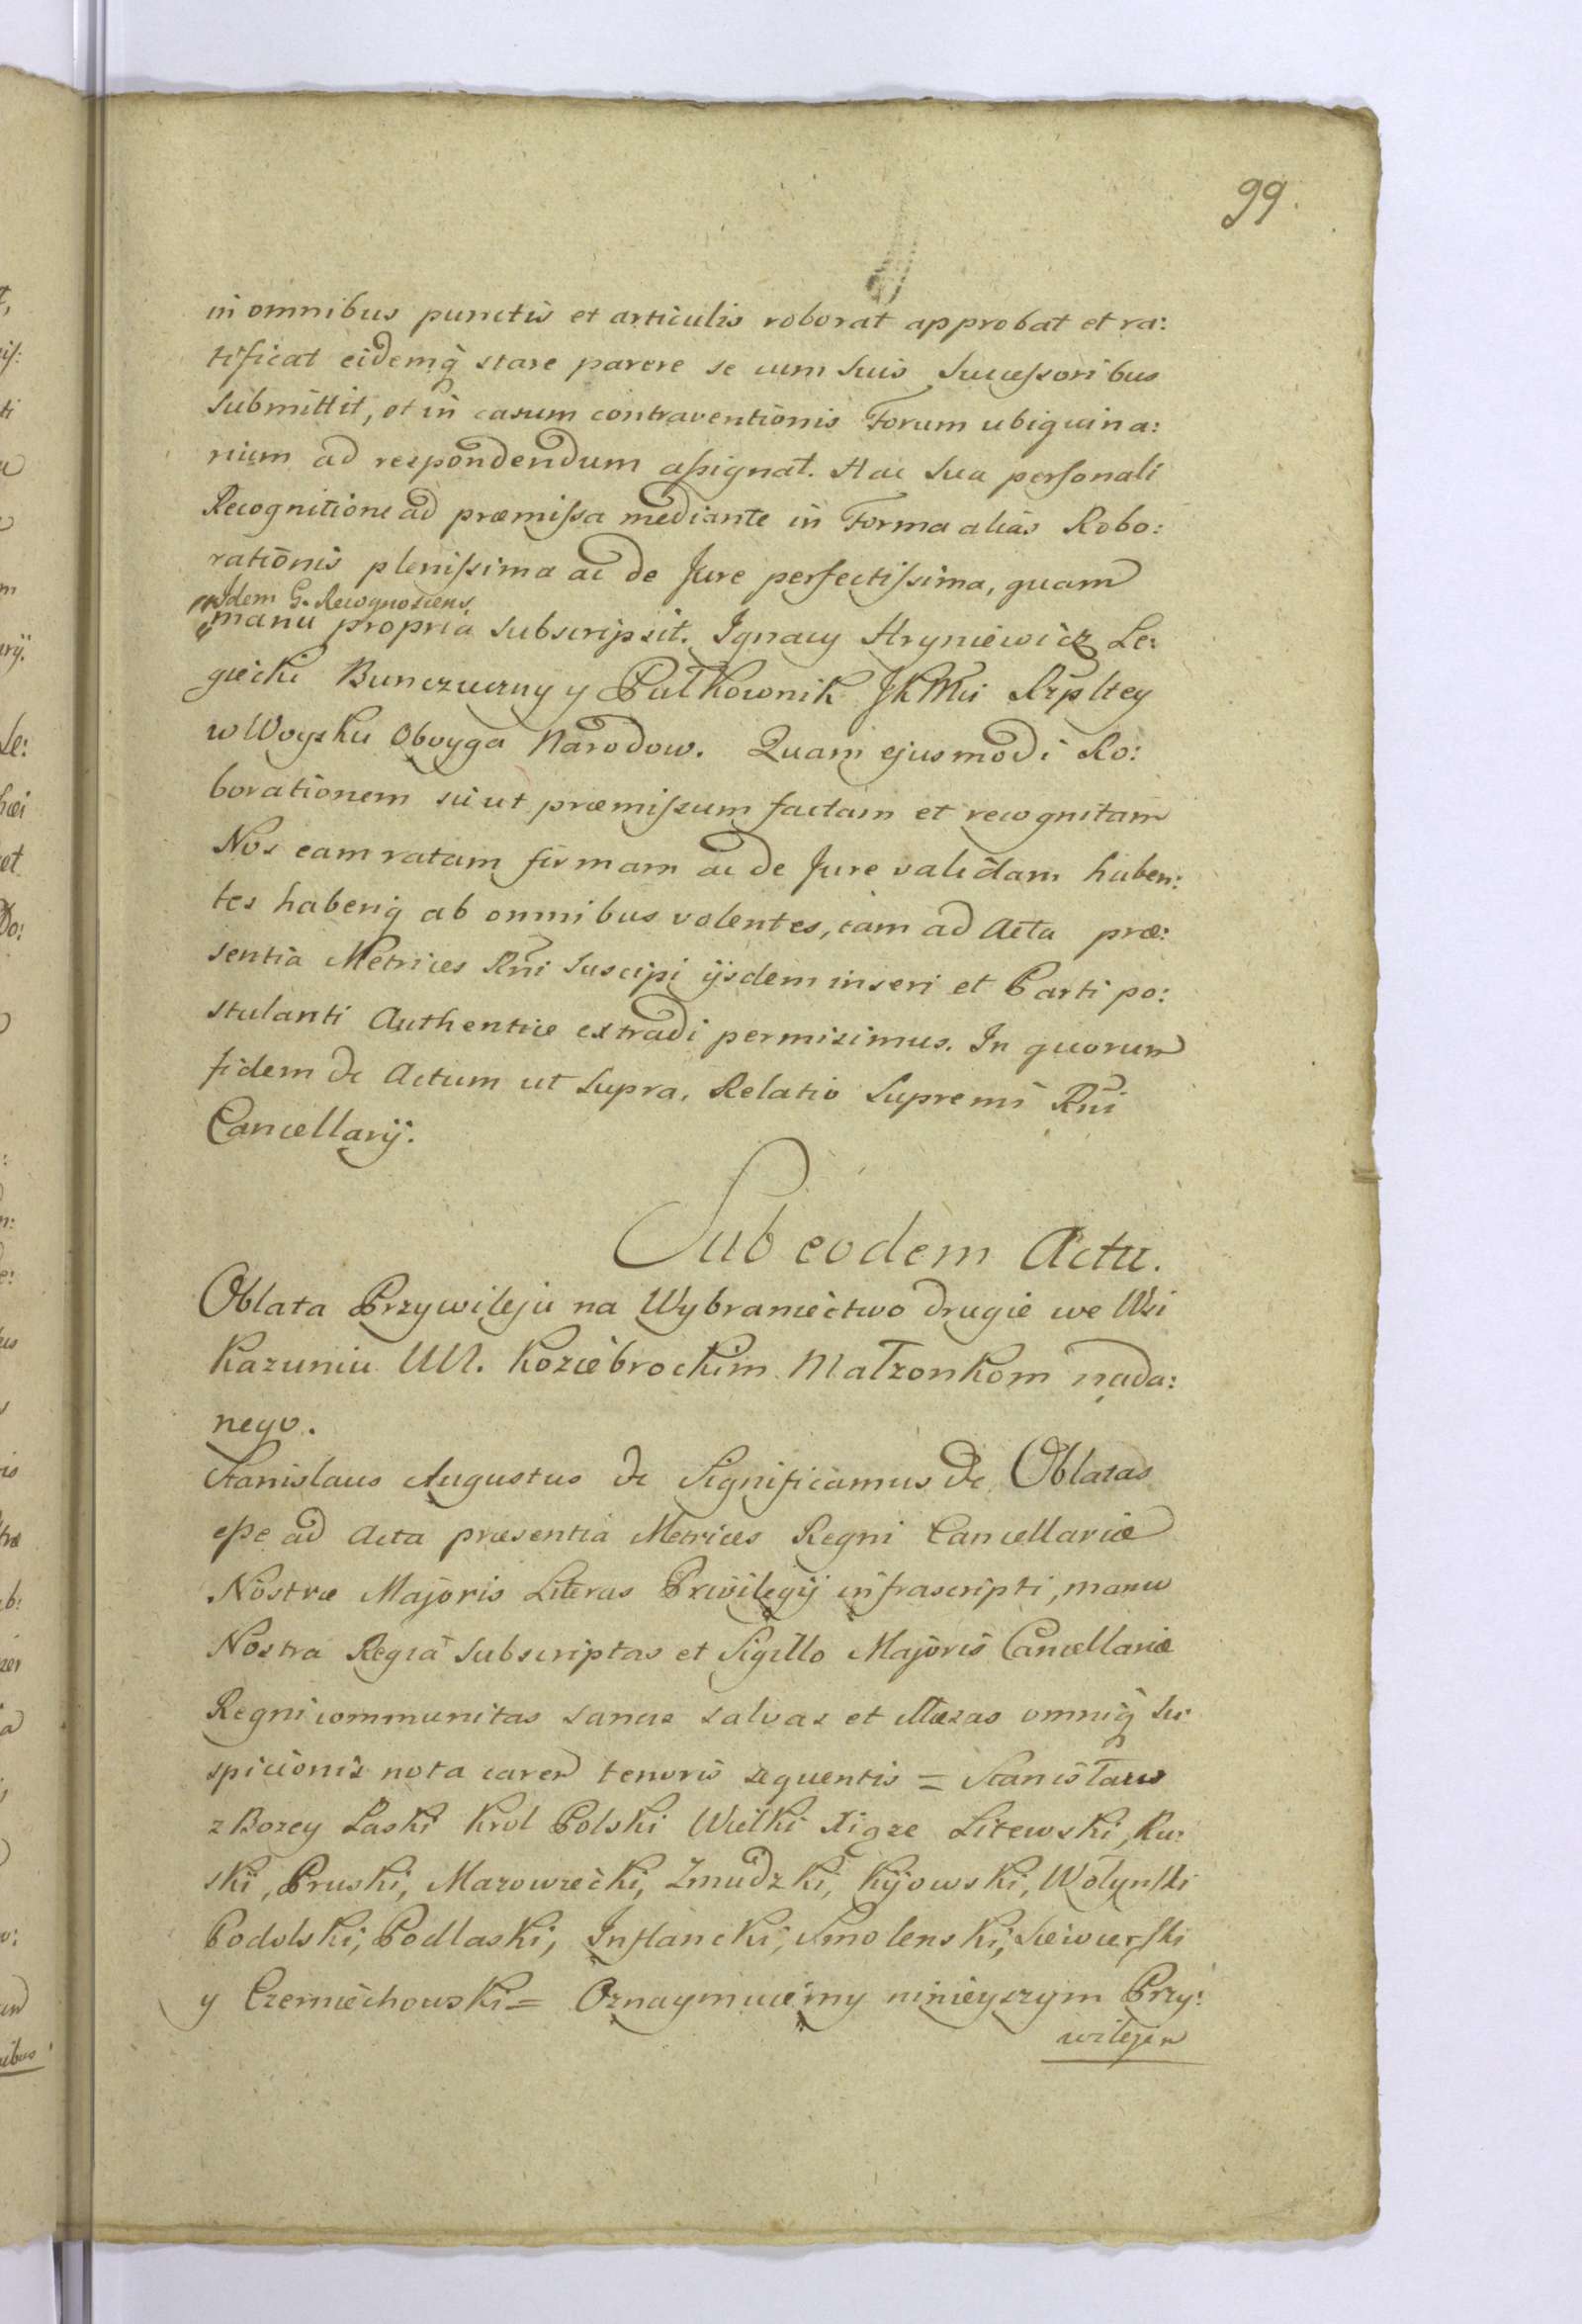 99.
in omnibus punctis et articulis roborat approbat et ra:
tificat eidemq̃ stare parere se cum suis Successoribus
submittit, et in casum contraventionis Forum ubiquina:
rium ad respondendum assignat. Hac sua personali
Recognitione ad præmissa mediante in Forma alias Robo:
rationis plenissima ac de Jure perfectissima, quam
Idem G. Recognoscens
manu propria subscripsit. Ignacy Hryniewicz Le:
giecki Bunczuczny y Pułkownik JKMci Rzpltey
w Woysku Oboyga Narodow. Quam ejusmodi Ro:
borationem sicut præmissum factam et recognitam
Nos eam ratam firmam ac de Jure validam haben:
tes haberiq̃ ab omnibus volentes, eam ad Acta præ:
sentia Metrices Rñi suscipi ijsdem inseri et Parti po:
stulanti Authentice extradi permisimus. In quorum
fidem &c Actum ut supra. Relatio Supremi Rñi
Cancellarij.
Sub eodem Actu.
Oblata Przywileju na Wybraniectwo drugie we Wsi
Kazuniu UUr. Koziebrockim Małzonkom nada:
nego.
Stanislaus Augustus &c Significamus &c Oblatas
esse ad Acta præsentia Metrices Regni Cancellariæ
Nostræ Majoris Literas Privilegij infrascripti, manu
Nostra Regia subscriptas et Sigillo Majoris Cancellariæ
Regni communitas sanas salvas et illæsas omniq̃ su:
spicionis nota caren tenoris sequentis = Stanisław
z Bozey Łaski Krol Polski Wielki Xiąze Litewski, Ru:
ski, Pruski, Mazowiecki, Zmudzki, Kijowski, Wołynski
Podolski, Podlaski, Inflancki, Smolenski, Siewierski
y Czerniechowski = Oznaymuiemy ninieyszym Przy:
wilejem